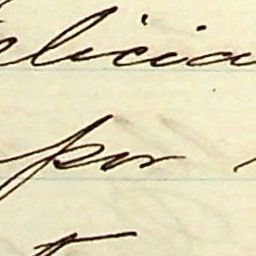 elicia
por